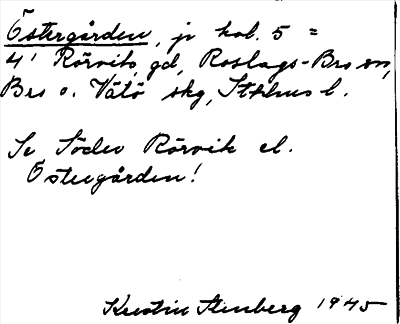 Östergården, jr kol. 5 =
4' Rörvik, gd, Roslags-Bro sn,
Bro o. Vätö skg, Sthlms l.
Se Söder Rörvik el.
Östergården!
Kerstin Stenberg 1945